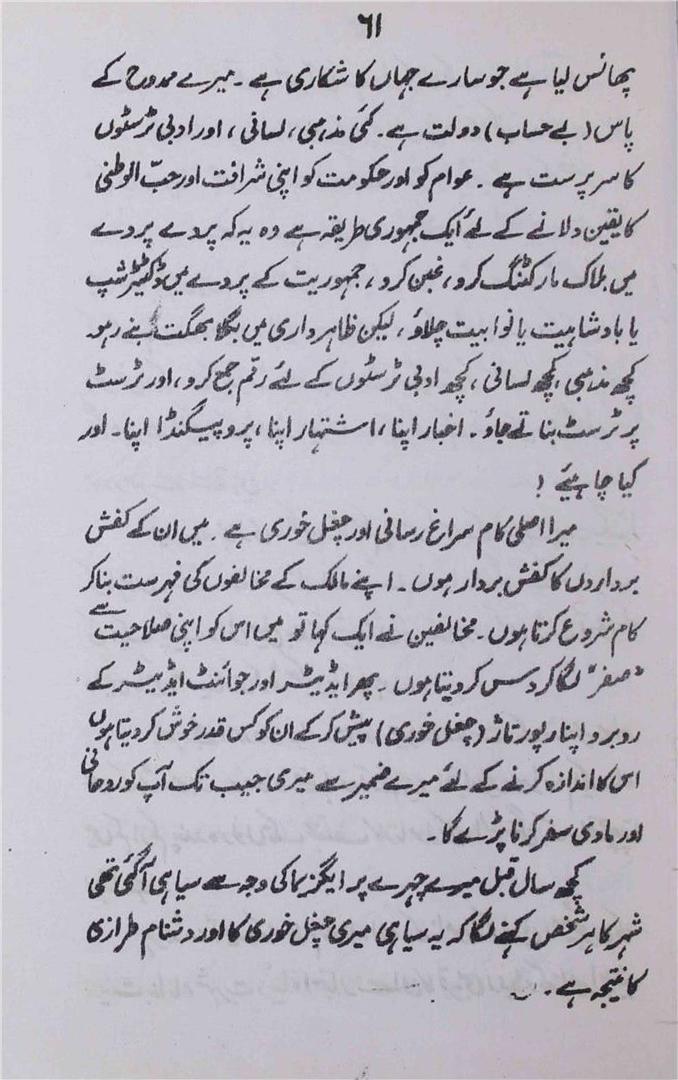 ۶۱
پھانس لیا ہے جو سارے جہاں کا شکاری ہے ۔ میرے ممدوح کے
پاس (بے حساب) دولت ہے ۔ کئی مذہبی، لسانی، اور ادبی ٹرسٹوں
کا سرپرست ہے ۔ عوام کو اور حکومت کو اپنی شرافت اور حبّ الوطنی
کا یقین دلانے کے لئے ایک جمہوری طریقہ ہے وہ یہ کہ پردے پردے
میں بلاک مارکٹنگ کرو، غبن کرو، جمہوریت کے پردے میں ڈکٹیٹر شپ
یا بادشاہیت یا نوابیت چلاؤ، لیکن ظاہر داری میں بگلا بھگت بنے رہو
کچھ مذہبی، کچھ لسانی، کچھ ادبی ٹرسٹوں کے لئے رقم جمع کرو، اور ٹرسٹ
پر ٹرسٹ بناتے جاؤ ۔ اخبار اپنا، اشتہار اپنا، پروپیگنڈا اپنا ۔ اور
کیا چاہیئے !
میرا اصلی کام سراغ رسانی اور چغل خوری ہے ۔ میں ان کے کفش
برداروں کا کفش بردار ہوں ۔ اپنے مالک کے مخالفوں کی فہرست بنا کر
کام شروع کرتا ہوں ۔ مخالفین نے ایک کہا تو میں اس کو اپنی صلاحیت سے
"صفر" لگا کر دس کر دیتا ہوں ۔ پھر ایڈیٹر اور جوائنٹ ایڈیٹر کے
روبرو اپنا رپورتاژ (چغل خوری) پیش کر کے ان کو کس قدر خوش کر دیتا ہوں
اس کا اندازہ کرنے کے لئے میرے ضمیر سے میری جیب تک آپ کو روحانی
اور مادی سفر کرنا پڑے گا ۔
کچھ سال قبل میرے چہرے پر ایگزیما کی وجہ سے سیاہی آ گئی تھی
شہر کا ہر شخص کہنے لگا کہ یہ سیاہی میری چغل خوری کا اور دشنام طرازی
کا نتیجہ ہے ۔